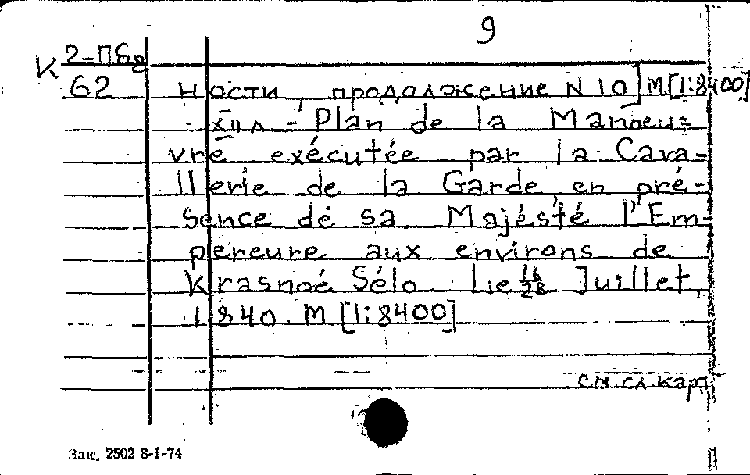 9
К 2-Пбд
62 ности, продолжение N 10] М [1:8400]
- Plan de la Manoeu=
vre exécutée par la Cava=
llerie de la Garde, en pré=
sence de sa Majésté l'Em-
pereure aux environs de
Krasnoé Sélo. Lie 16/28 Juillet,
1840. М [1:8400]
см. сл. карт
Зак. 2502 8-1-74